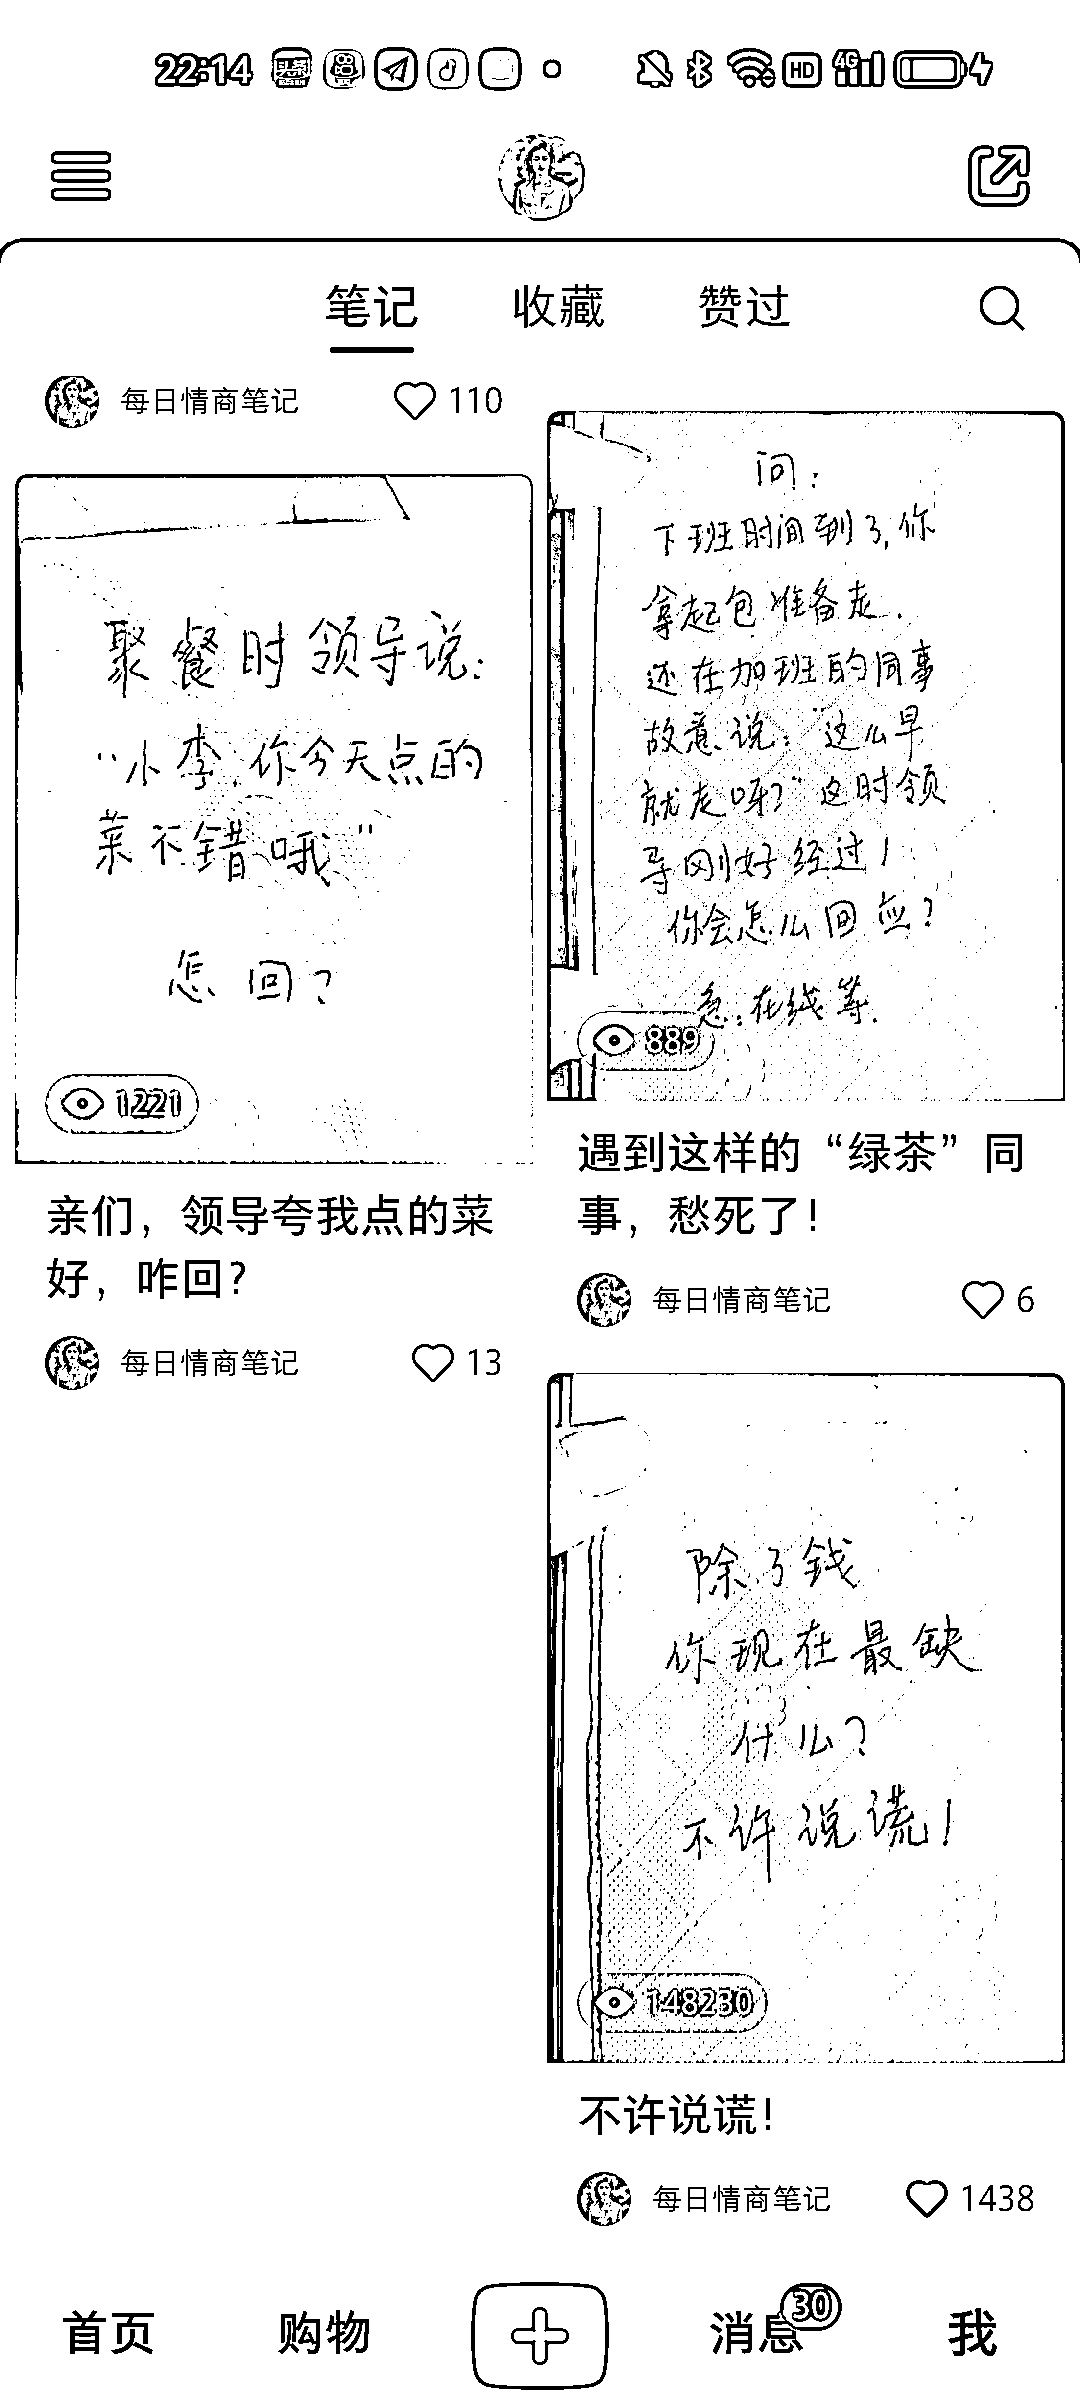 22:14
HD 4G
笔记 收藏 赞过
每日情商笔记 110
聚餐时领导说:
"小李,你今天点的
菜不错哦"
怎回?
1221
亲们，领导夸我点的菜
好，咋回?
每日情商笔记 13
问:
下班时间到了,你
拿起包准备走.
还在加班的同事
故意说:"这么早
就走呀?"这时领
导刚好经过!
你会怎么回应?
急:在线等.
889
遇到这样的“绿茶”同
事，愁死了!
每日情商笔记 6
除了钱
你现在最缺
什么?
不许说谎!
148230
不许说谎!
每日情商笔记 1438
首页 购物 消息 30 我